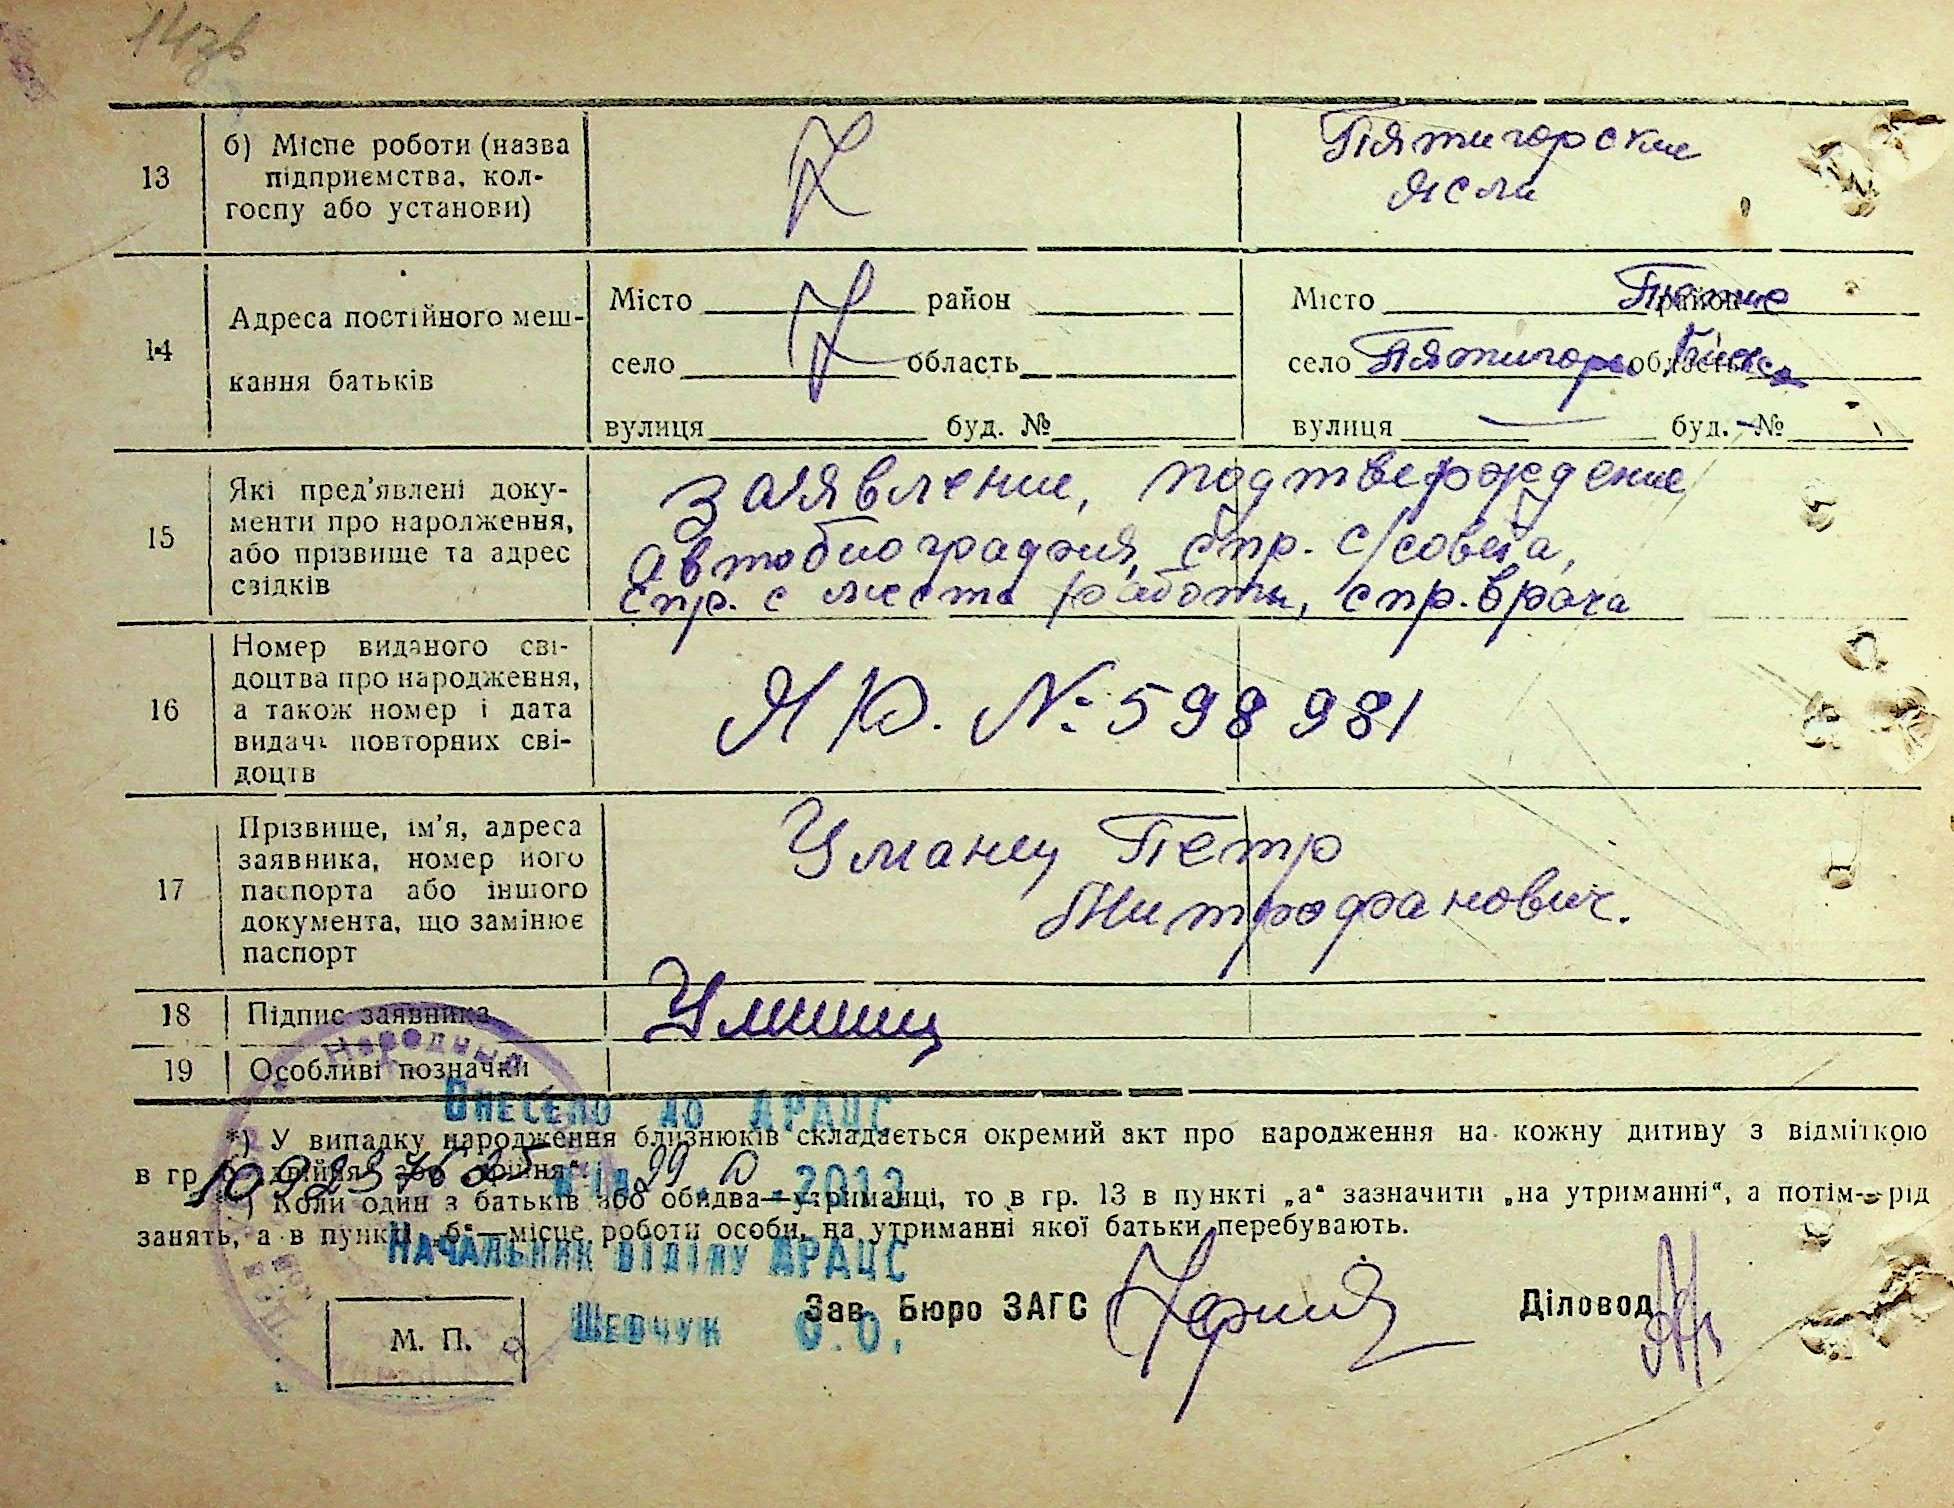 14зв
13
б) Місце роботи (назва
підприємства, кол-
госпу або установи)
Пятигорские
ясли
14
Адреса постійного меш-
кання батьків
Місто район
село область
вулиця буд. №
Місто район
село Пятигоры область Киевск
вулиця — буд. №
15
Які пред'явлені доку-
менти про народження,
або прізвище та адрес
свідків
заявление, подтверждение
автобиография, спр. с/совета,
спр. с места работы, спр. врача
16
Номер виданого сві-
доцтва про народження,
а також номер і дата
видачі повторних сві-
доцтв
ЯЮ. № 598981
17
Прізвище, ім'я, адреса
заявника, номер його
паспорта або іншого
документа, що замінює
паспорт
Уманец Петр
Митрофанович.
18 Підпис заявника
Уманец
19 Особливі позначки
Внесено до ДРАЦС
*) У випадку народження близнюків складається окремий акт про народження на кожну дитину з відміткою
в гр. „двійня" або „трійня".
2013
) Коли один з батьків або обидва—утриманці, то в гр. 13 в пункті „а" зазначити „на утриманні", а потім—рід
занять, а в пункті „б"—місце роботи особи, на утриманні якої батьки перебувають.
Начальник відділу ДРАЦС
Зав. Бюро ЗАГС
Діловод
Шевчук О.О.
М. П.